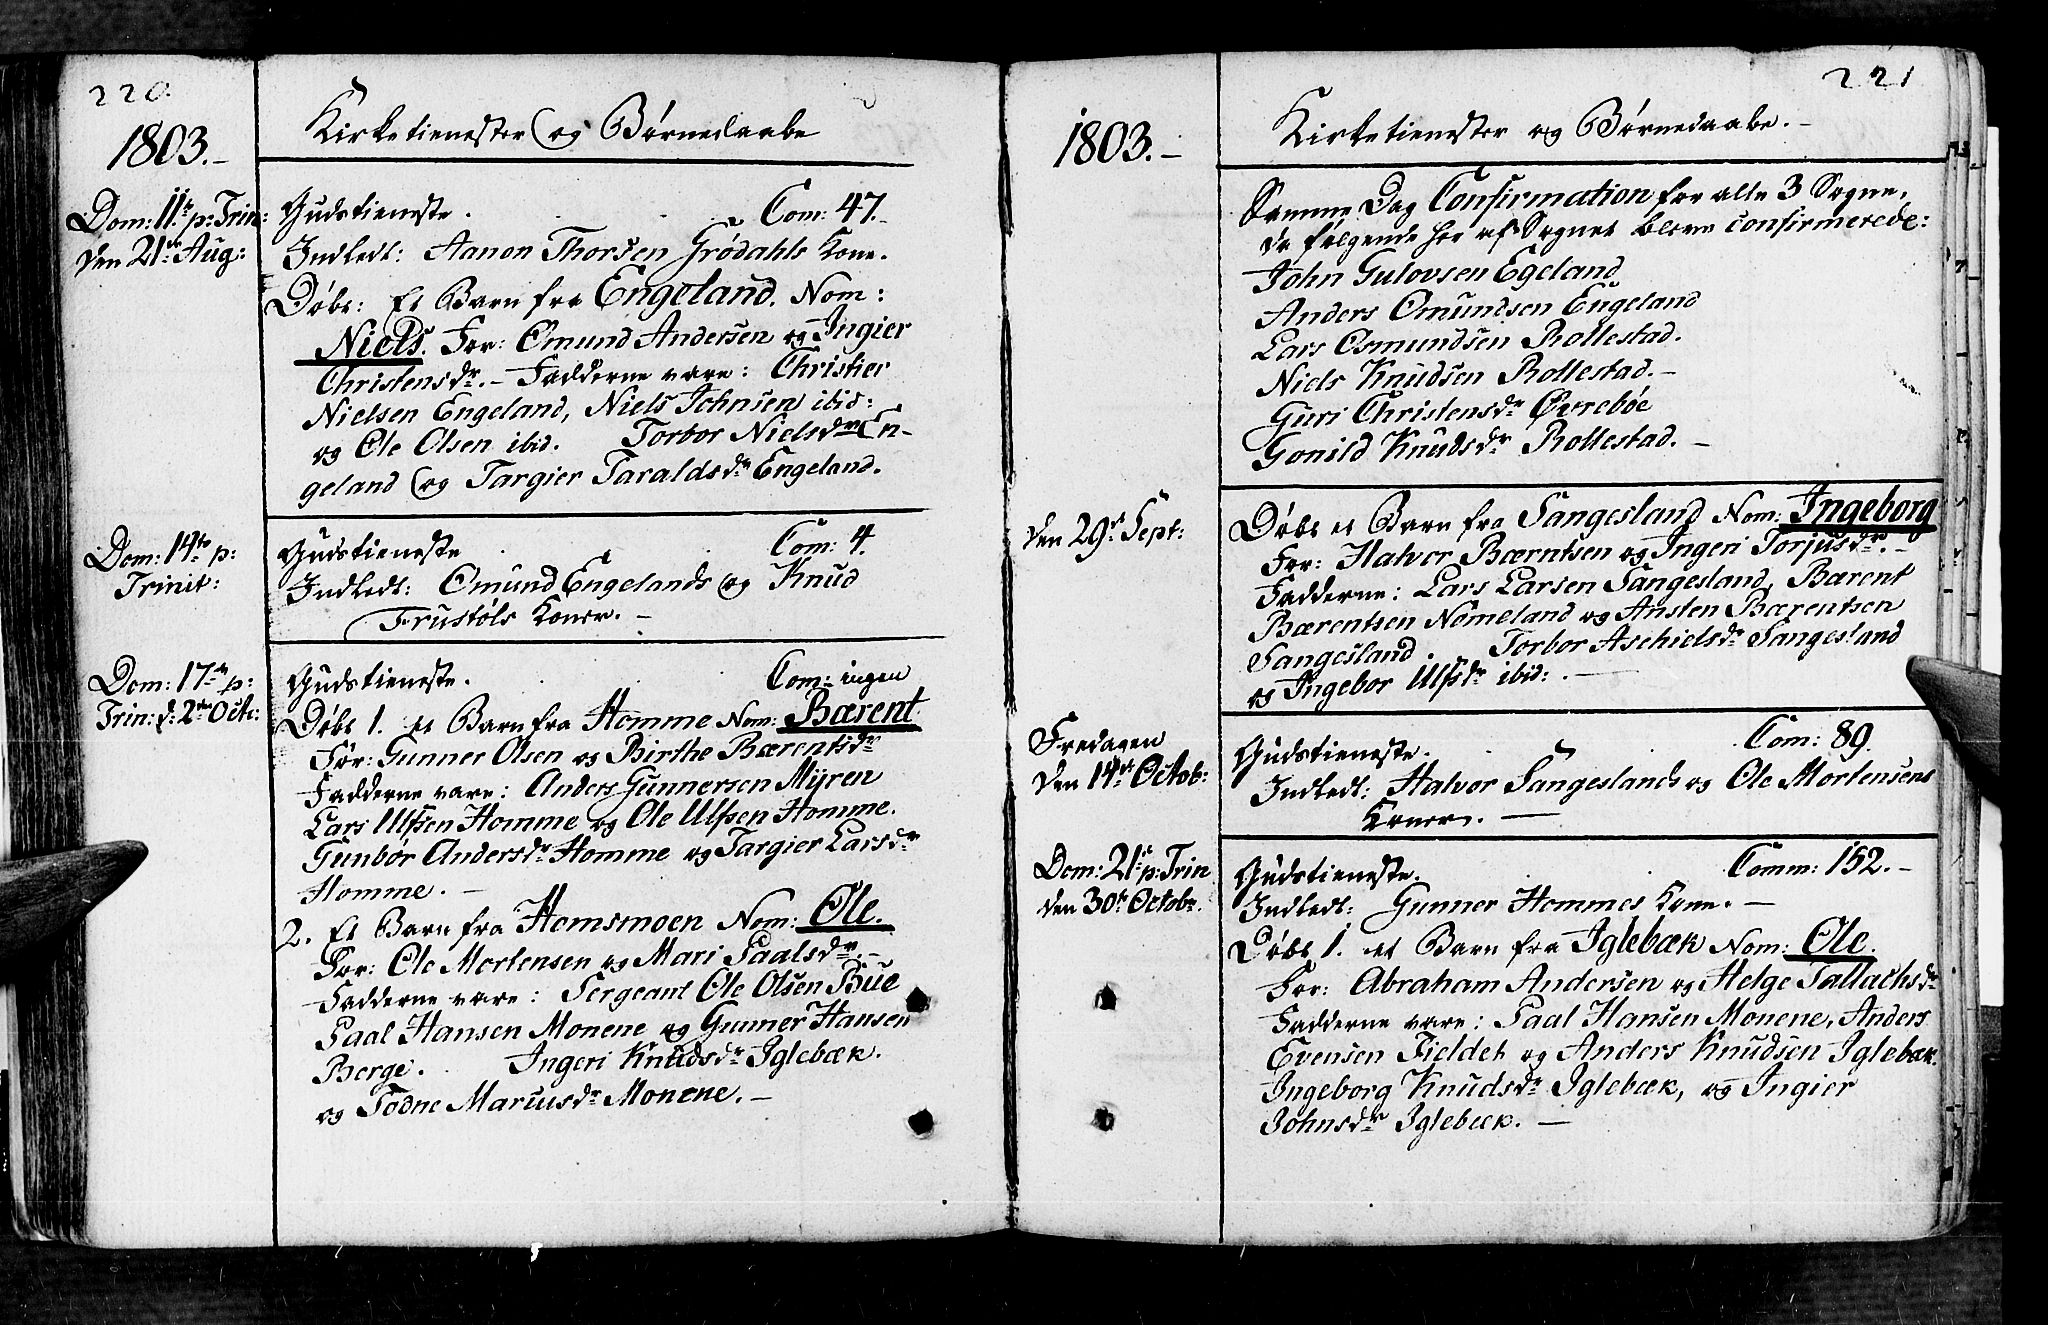 220.
1803.-
Kirketienester og Børnedaabe
Dom: 11te p: Trin:
den 21de Aug:
Gudstieneste. Com: 47.-
Indledt: Aanon Thorsen Grødahls Kone.
Døbt: Et Barn fra Engeland. Nom:
Niels. For: Omund Andersen og Ingier
Christensdr.- Fadderne vare: Christier
Nielsen Engeland, Niels Johnsen ibid:
og Ole Olsen ibid. Torbor Nielsdr En-
geland og Targier Taraldsdr Engeland.
Dom: 14te p:
Trinit:
Gudstieneste Com: 4.
Indledt: Omund Engelands og Knud
Frustøls Koner.-
Dom: 17de p:
Trin: d: 2den Octr:
Gudstieneste. Com: ingen
Døbt 1. et Barn fra Homme Nom: Bærent
For: Gunner Olsen og Birthe Bærentsdr
Fadderne vare: Anders Gunnersen Myren
Lars Ulfsen Homme og Ole Ulfsen Homme.
Gunbør Andersdr Homme og Targier Larsdr
Homme.-
2. Et Barn fra Homsmoen Nom: Ole.
For: Ole Mortensen og Mari Paalsdr.-
Fadderne vare: Sergeant Ole Olsen Bue
Paal Hansen Monene og Gunner Hansen
Berge. Ingeri Knudsdr Iglebæk.
og Todne Mariusdr Monene.-
221
1803.-
Kirketienester og Børnedaabe.-
Samme Dag Confirmation for alle 3 Sogne,
da følgende her af Sognet bleve confirmerede:
John Gulovsen Egeland
Anders Omundsen Engeland
Lars Osmundsen Rollestad.
Niels Knudsen Rollestad.-
Guri Christensdr Øvrebøe
Gonild Knudsdr Rollestad.-
den 29de Sept:
Døbt et Barn fra Sangesland Nom: Ingeborg
For: Halvor Bærntsen og Ingeri Torjusdr.-
Fadderne: Lars Larsen Sangesland, Bærent
Bærentsen Nomeland og Ansten Bærentsen
Sangesland. Torbor Aschielsdr Sangesland
og Ingebor Ulfsdr ibid:.-
Fredagen
den 14de Octob:
Gudstieneste. Com: 89.
Indledt: Halvor Sangeslands og Ole Mortensens
Koner.-
Dom: 21de p: Trin
den 30te Octobr.
Gudstieneste. Comm: 152.-
Indledt: Gunner Hommes Kone.-
Døbt 1. et Barn fra Iglebæk Nom: Ole.
For: Abraham Andersen og Helge Tallachsdr
Fadderne vare: Paal Hansen Monene, Anders
Evensen Fieldet og Anders Knudsen Iglebæk.
Ingeborg Knudsdr Iglebæk, og Ingier
Johnsdr Iglebæk.-